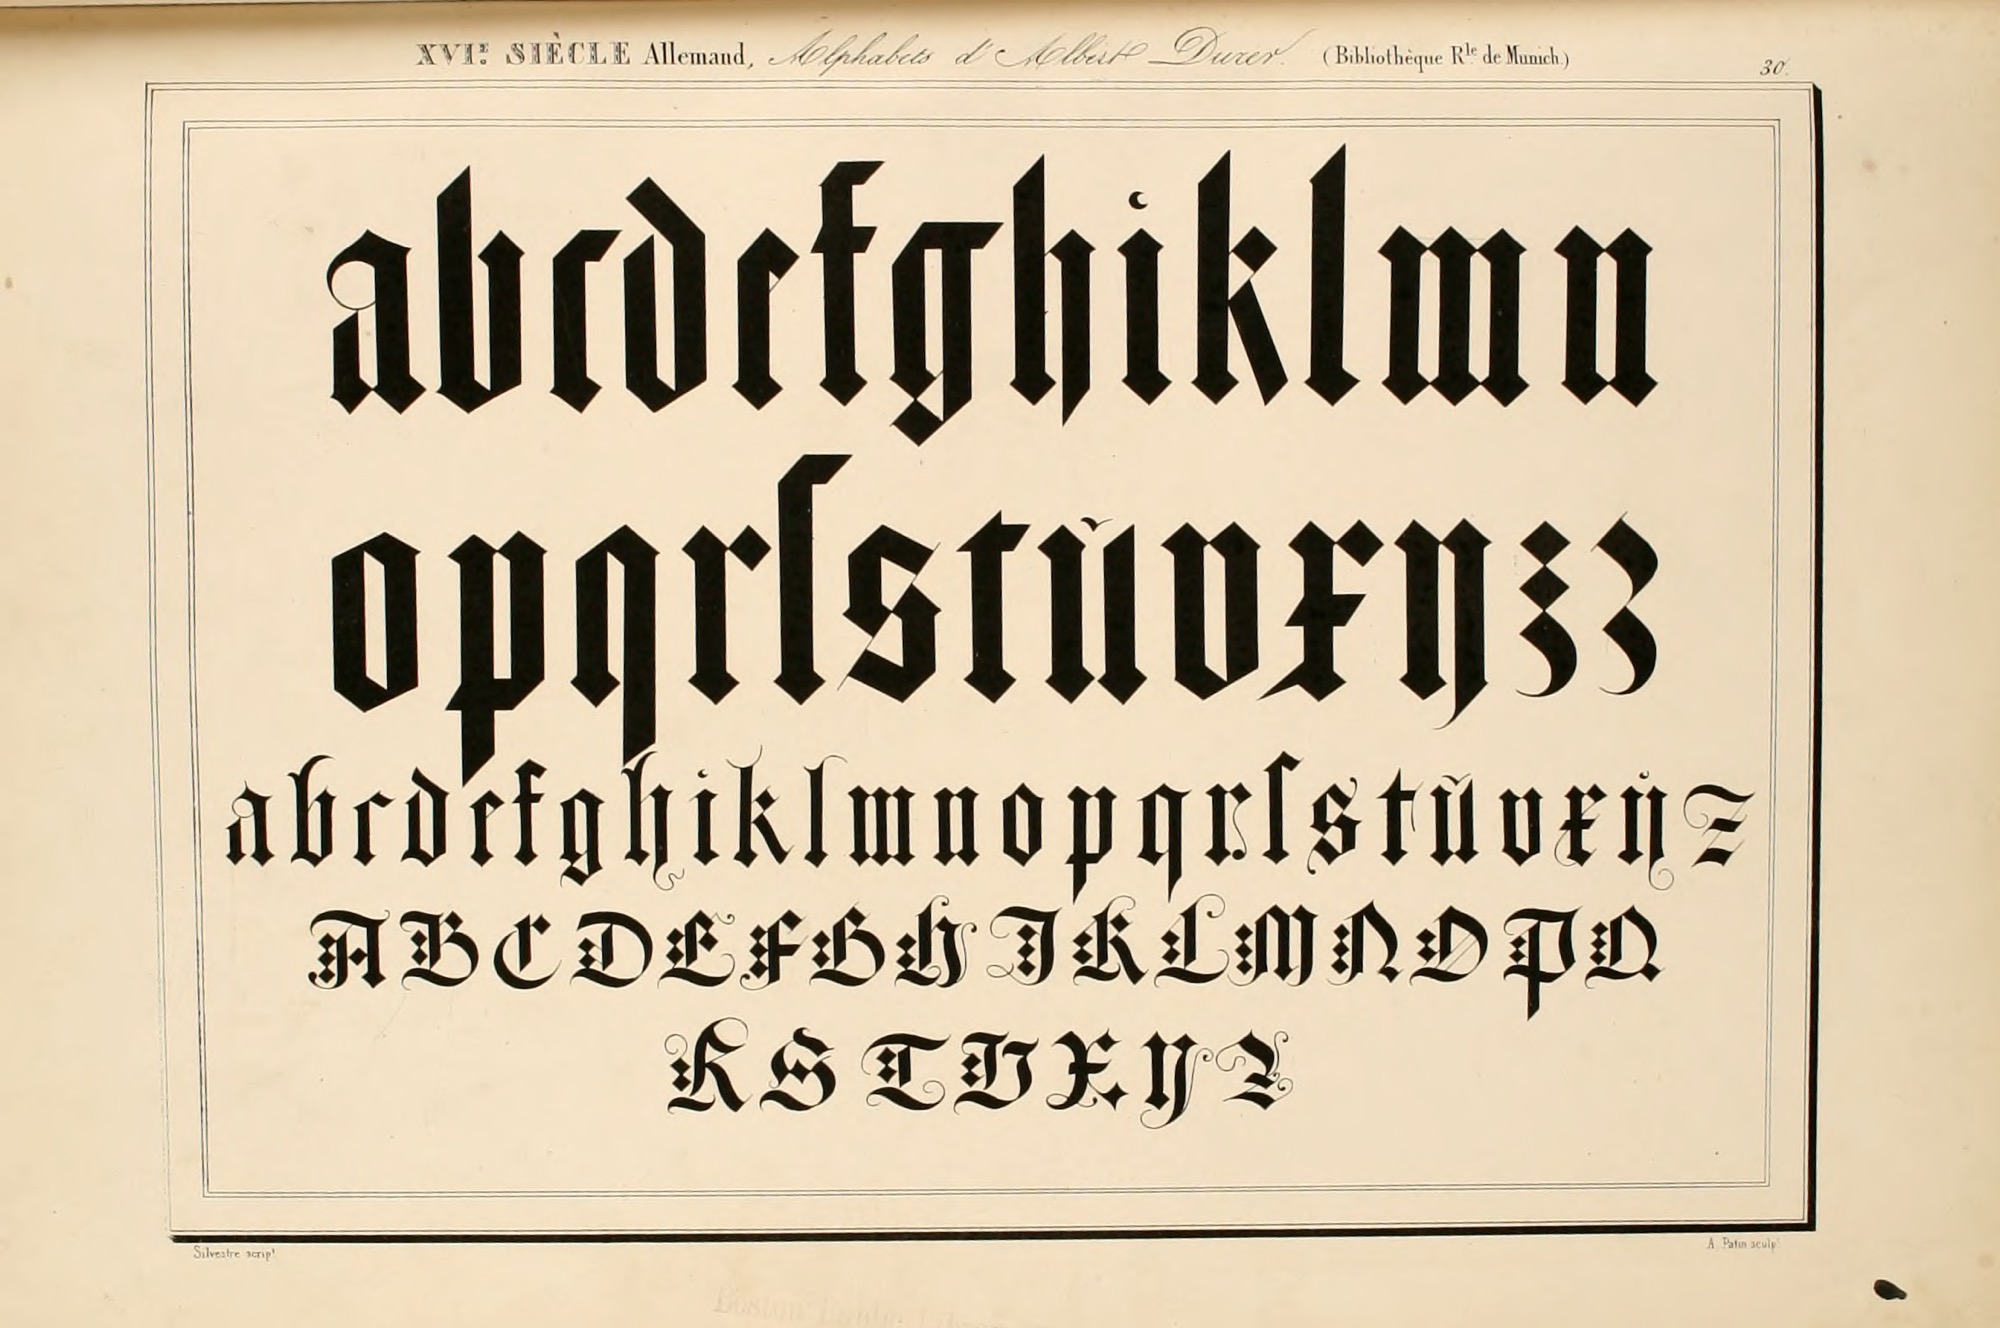 XVIE. SIÈCLE Allemand, Alphabets d'Albert Durer. (Bibliothèque Rle. de Munich.)
30.
abcdefghiklmn
opqrſstŭvxyzz
abcdefghiklmnopqrſstŭvxÿz
ABCDEFGHIKLMNOPQ
RSTVXYZ
Silvestre script.
A. Patin sculpt.
Boston Public